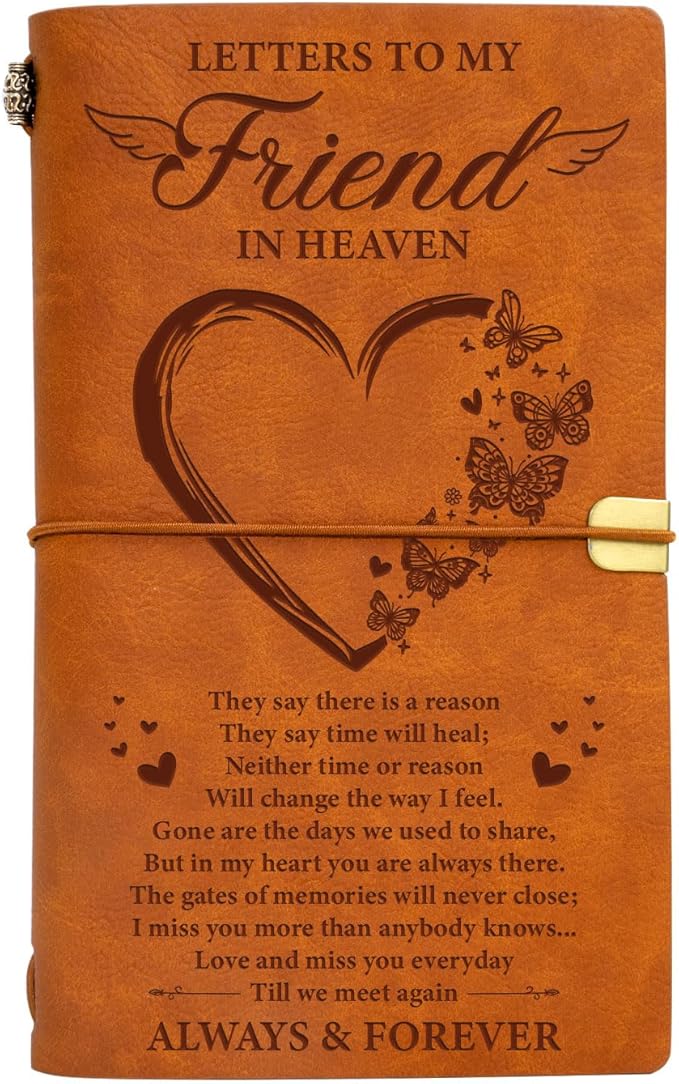 LETTERS TO MY
Friend
IN HEAVEN
They say there is a reason
They say time will heal;
Neither time or reason
Will change the way I feel.
Gone are the days we used to share,
But in my heart you are always there.
The gates of memories will never close;
I miss you more than anybody knows...
Love and miss you everyday
Till we meet again
ALWAYS & FOREVER